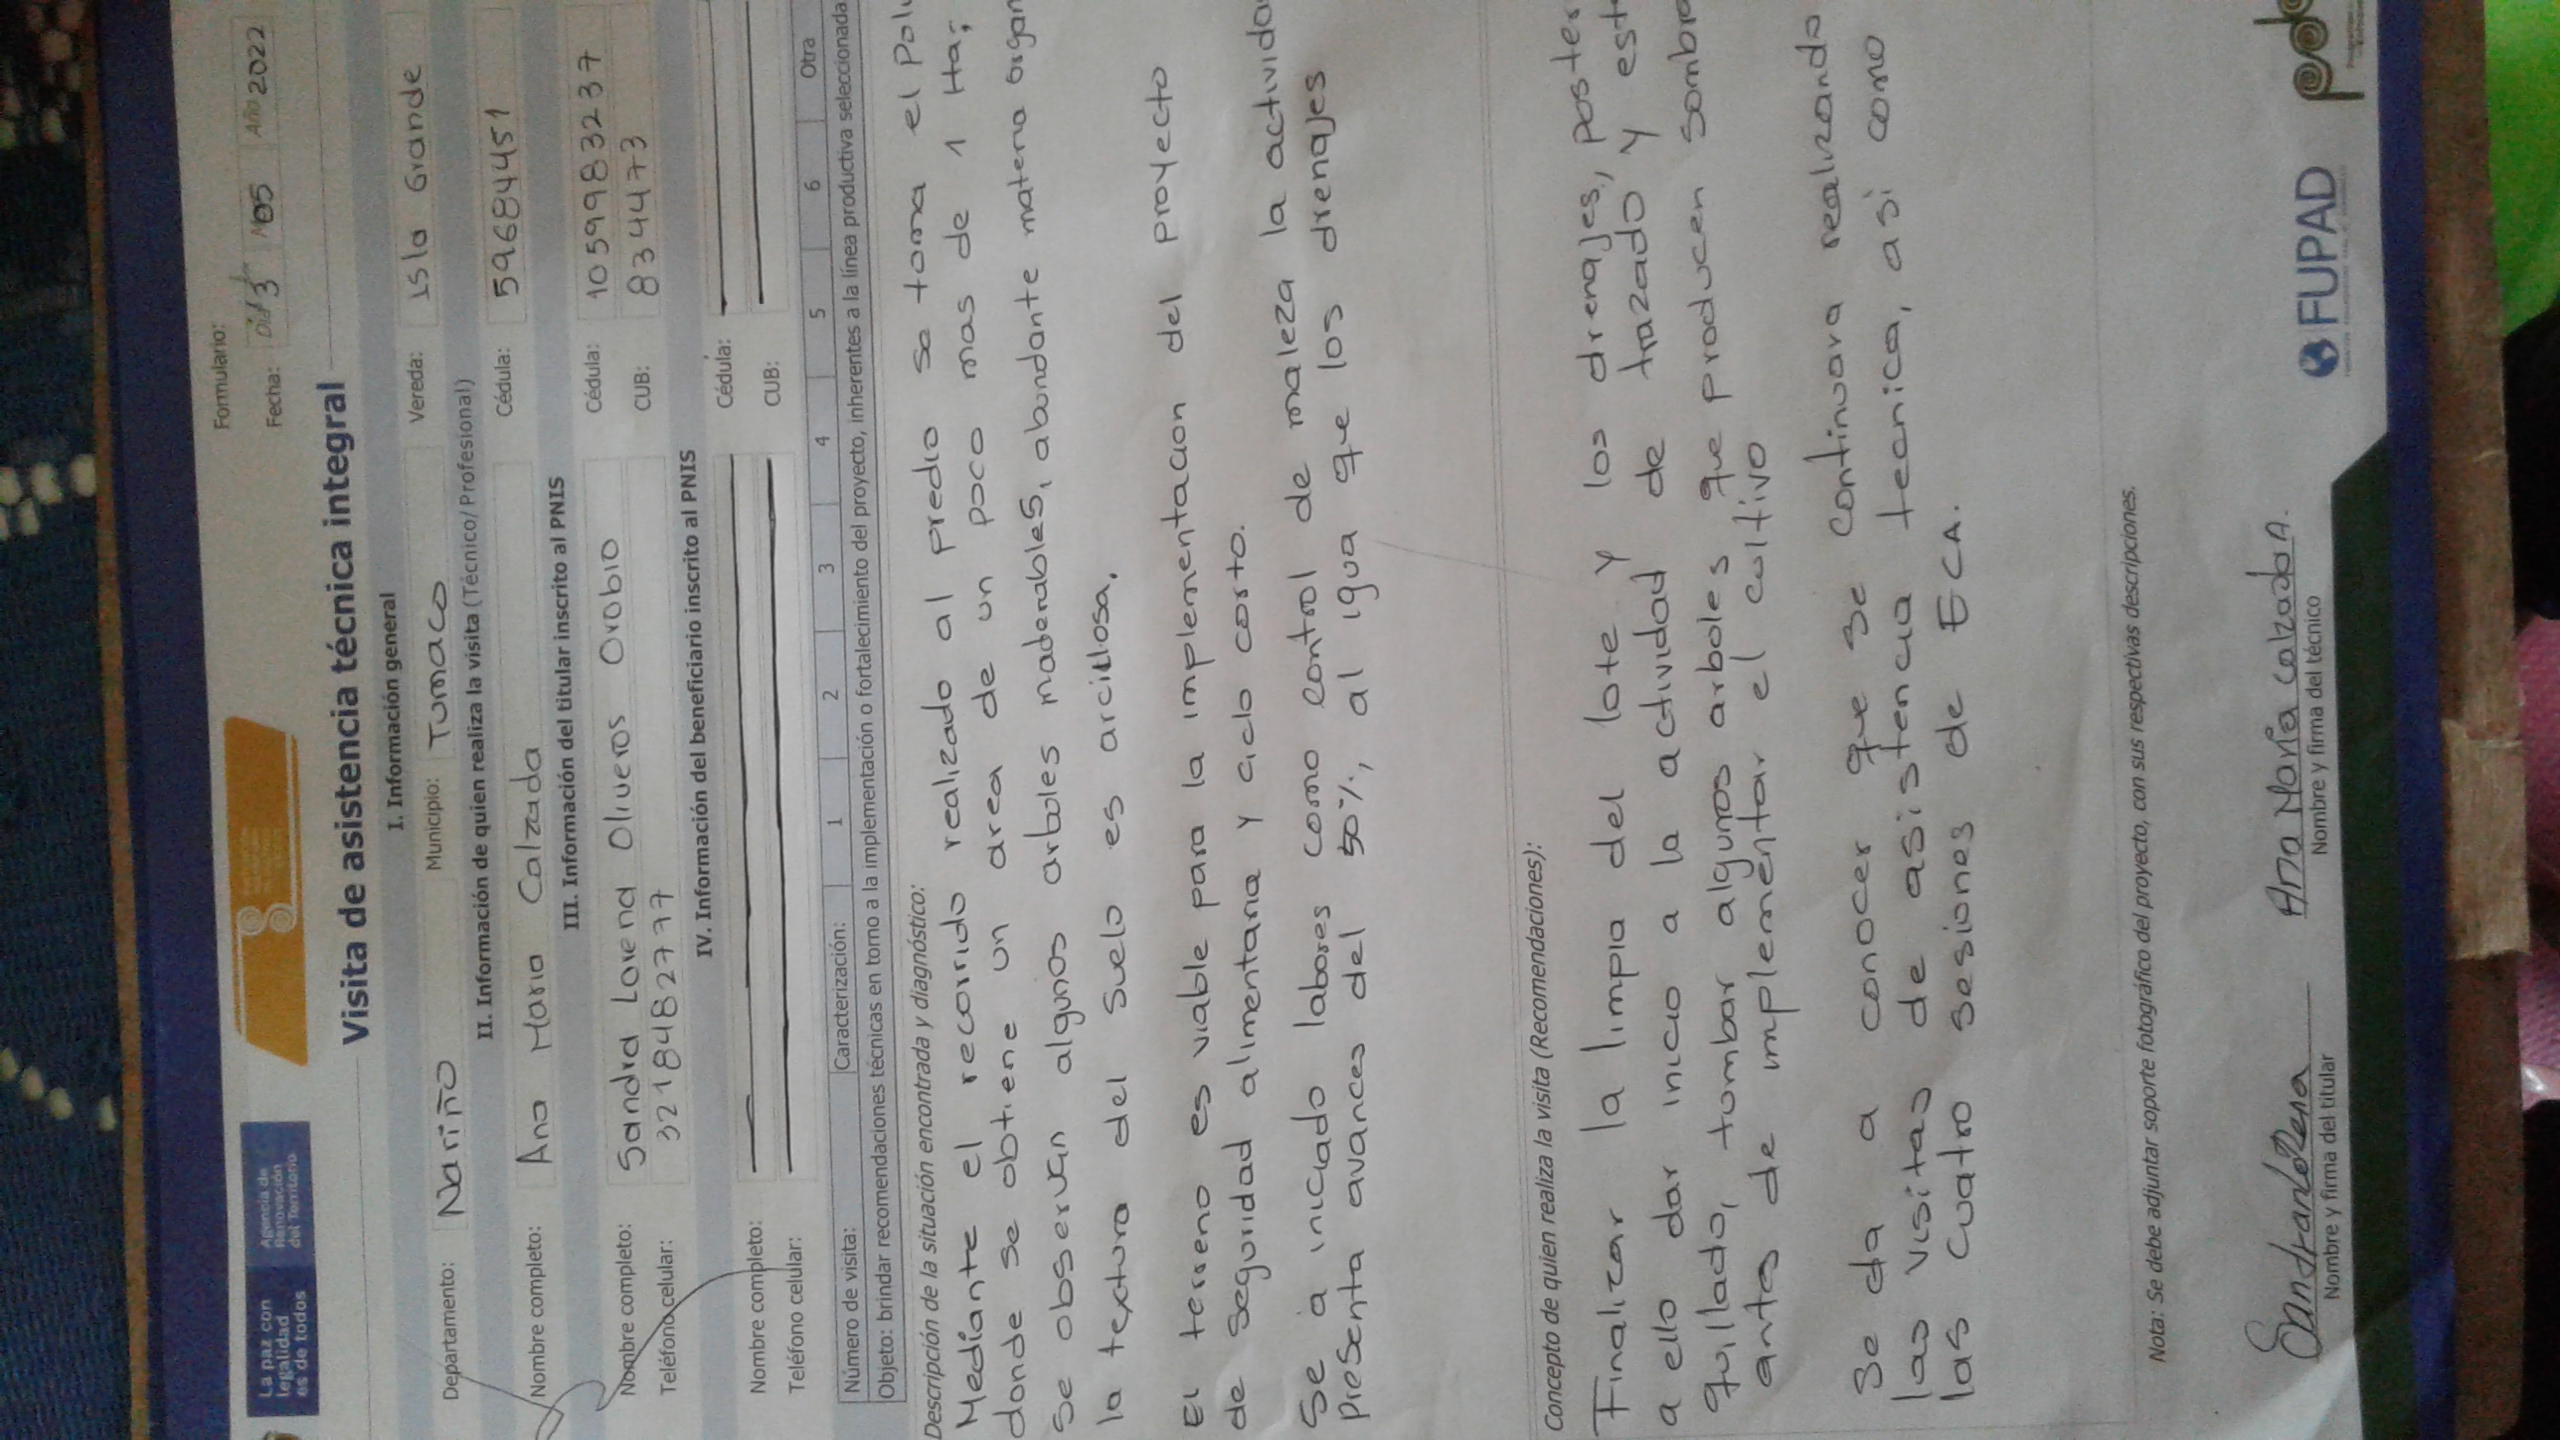 La paz con
legalidad
es de todos
Agencia de
Renovación
del Territorio
Formulario:
Fecha: Día 3 05 Año 2022
Visita de asistencia técnica integral
I. Información general
Departamento: Nariño Municipio: Tumaco Vereda: Isla Grande
II. Información de quien realiza la visita (Técnico/ Profesional)
Nombre completo: Ana Maria Calzada Cédula: 59684451
III. Información del titular inscrito al PNIS
Nombre completo: Sandra Lorena Oliveros Orobio Cédula: 1059983237
Teléfono celular: 3218482777 CUB: 8344473
IV. Información del beneficiario inscrito al PNIS
Nombre completo: Cédula:
Teléfono celular: CUB:
Número de visita: Caracterización: 1 2 3 4 5 6 Otra
Objeto: brindar recomendaciones técnicas en torno a la implementación o fortalecimiento del proyecto, inherentes a la línea productiva seleccionada
Descripción de la situación encontrada y diagnóstico:
Mediante el recorrido realizado al predio se toma el Polí
donde se obtiene un area de un poco mas de 1 Ha;
se observan algunos arboles maderables, abundante materia organ
la textura del suelo es arcillosa.
El terreno es viable para la implementacion del proyecto
de seguridad alimentaria y ciclo corto.
Se a iniciado labores como control de maleza la activida
presenta avances del 50%, al igua que los drenajes
Concepto de quien realiza la visita (Recomendaciones):
Finalizar la limpia del lote y los drenajes, poster
a ello dar inicio a la actividad de trazado y est
quillado, tumbar algunos arboles que producen sombra
antes de implementar el cultivo
Se da a conocer que se continuara realizando
las visitas de asistencia tecnica, asi como
las cuatro sesiones de ECA.
Nota: Se debe adjuntar soporte fotográfico del proyecto, con sus respectivas descripciones.
Ana Maria Calzada A.
Nombre y firma del titular Nombre y firma del técnico
FUPAD